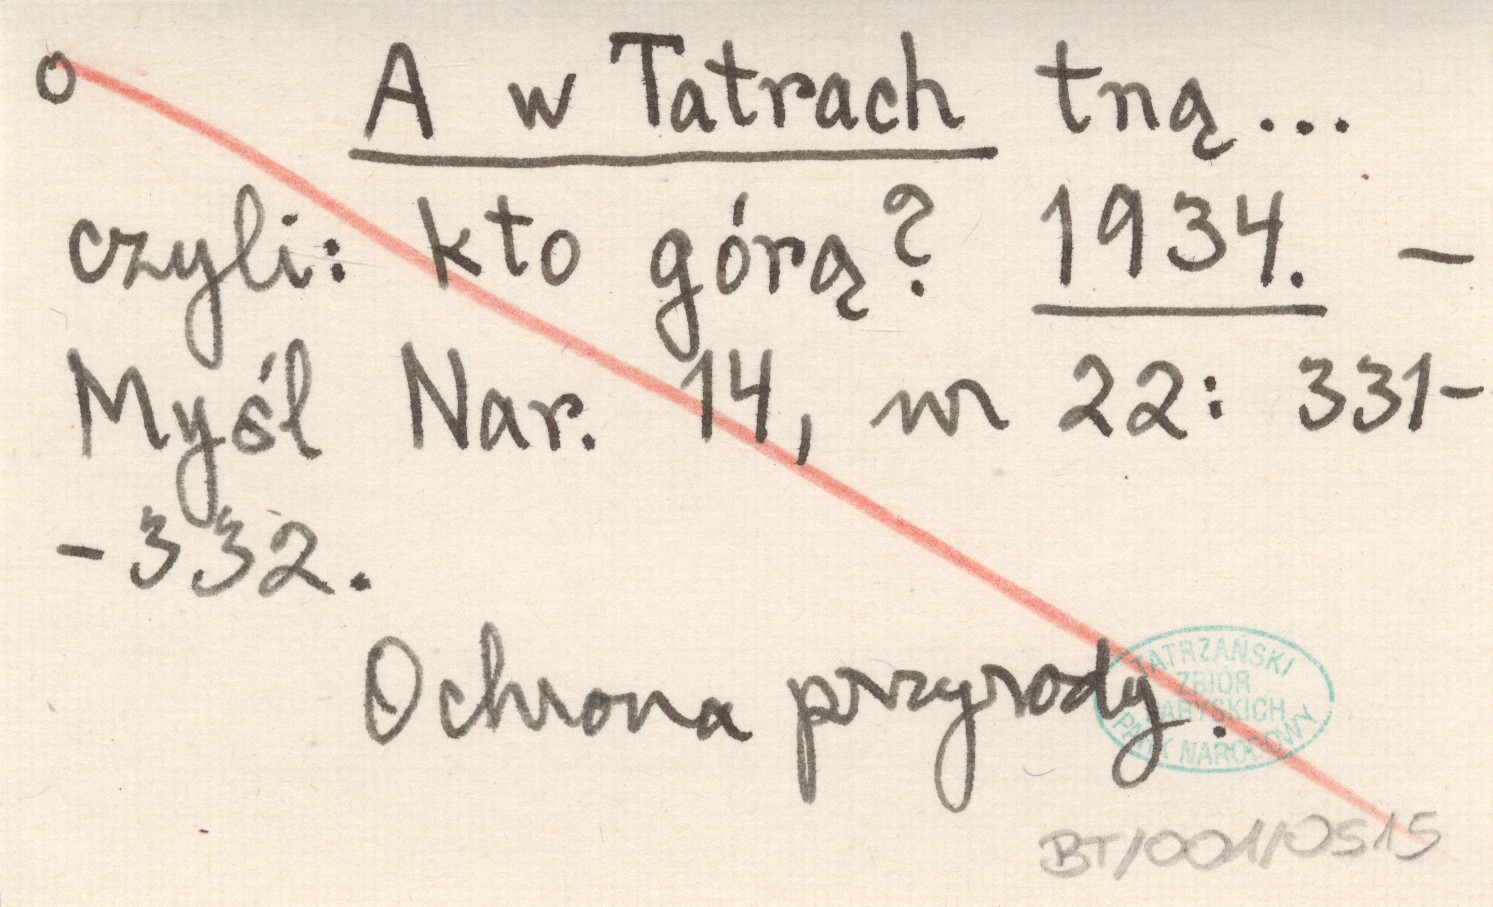 o A w Tatrach tną...
czyli: kto górą? 1934. –
Myśl Nar. 14, nr 22: 331-
-332.
Ochrona przyrody.
TATRZAŃSKI
ZBIÓR
PARYSKICH
PARK NARODOWY
BT/001/0515